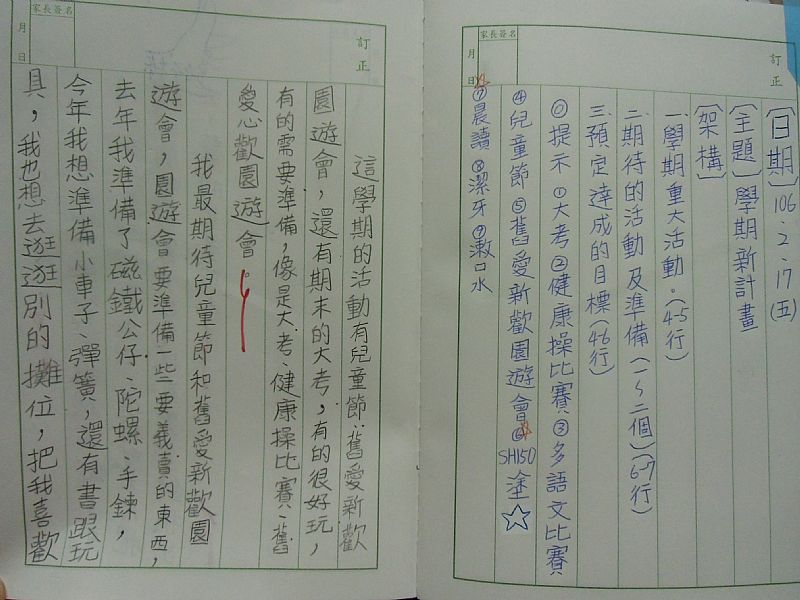 家長簽名
月
日
訂正
〔日期〕106.2.17(五)
〔主題〕學期新計畫
〔架構〕
一.學期重大活動。(4-5行)
二.期待的活動及準備(一~二個)(6-7行)
三.預定達成的目標(4-6行)
◎提示①大考②健康操比賽③多語文比賽
④兒童節⑤舊愛新歡園遊會⑥SH150塗☆
⑦晨讀⑧潔牙⑨漱口水
家長簽名
月
日
訂正
這學期的活動有兒童節、舊愛新歡
園遊會,還有期末的大考,有的很好玩,
有的需要準備,像是大考、健康操比賽、舊
愛心歡園遊會。
我最期待兒童節和舊愛新歡園
遊會,園遊會要準備一些要義賣的東西,
去年我準備了磁鐵公仔、陀螺、手鍊,
今年我想準備小車子、彈簧,還有書跟玩
具,我也想去逛逛別的攤位,把我喜歡